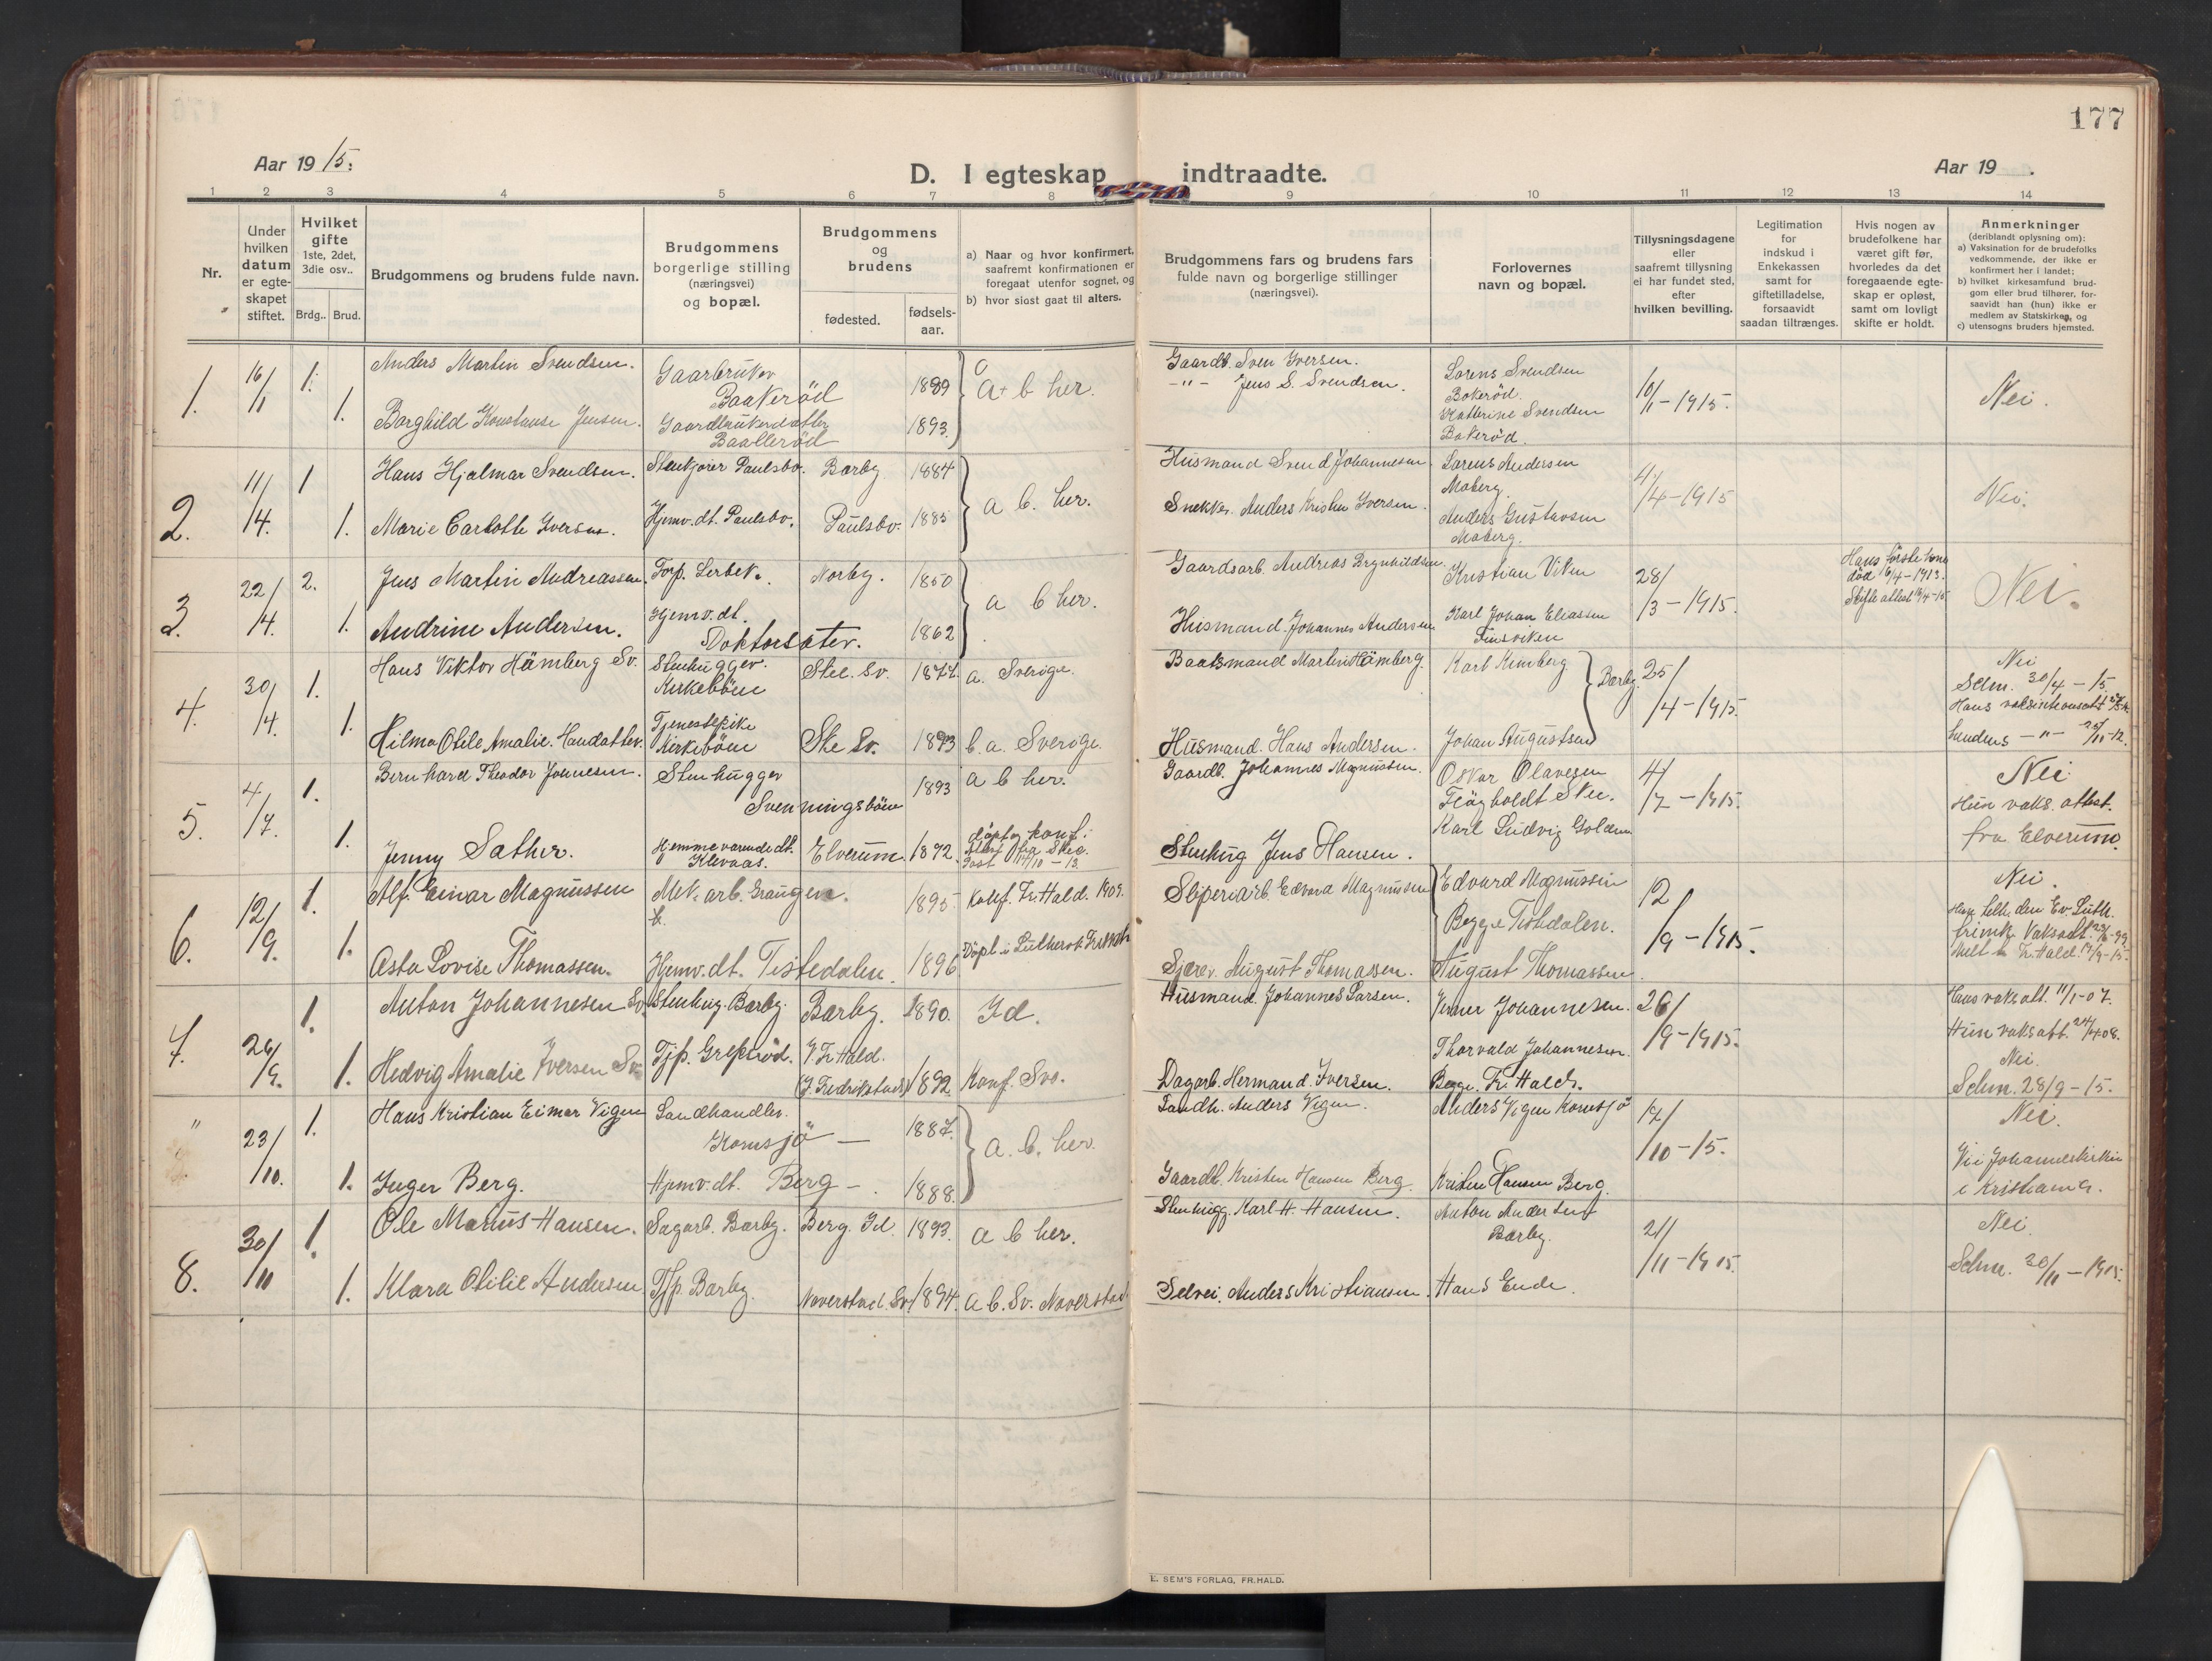 177
Aar 19 15.
D. I egteskap indtraadte.
Aar 19 .
1 2 3 4 5 6 7 8 9 10 11 12 13 14
Nr.
Under
hvilken
datum
er egte-
skapet
stiftet.
Hvilket
gifte
1ste, 2det,
3die osv..
Brdg.. Brud.
Brudgommens og brudens fulde navn.
Brudgommens
borgerlige stilling
(næringsvei)
og bopæl.
Brudgommens
og
brudens
fødested.
fødsels-
aar.
a) Naar og hvor konfirmert,
saafremt konfirmationen er
foregaat utenfor sognet, og
b) hvor sidst gaat til alters.
Brudgommens fars og brudens fars
fulde navn og borgerlige stillinger
(næringsvei).
Forlovernes
navn og bopæl.
Tillysningsdagene
eller
saafremt tillysning
ei har fundet sted,
efter
hvilken bevilling.
Legitimation
for
indskud i
Enkekassen
samt for
giftetilladelse,
forsaavidt
saadan tiltrænges.
Hvis nogen av
brudefolkene har
været gift før,
hvorledes da det
foregaaende egte-
skap er opløst,
samt om lovligt
skifte er holdt.
Anmerkninger
(deriblandt oplysning om):
a) Vaksination for de brudefolks
vedkommende, der ikke er
konfirmert her i landet;
b) hvilket kirkesamfund brud-
gom eller brud tilhører, for-
saavidt han (hun) ikke er
medlem av Statskirken, og
c) utensogns bruders hjemsted.
1. 16/1 1. Anders Martin Svendsen. Gaarbruker Baakerød 1889 a + b her. Gaardb. Sven Iversen. Lorens Svendsen Bokerød. 10/1-1915. Nei.
1. Borghild Konstanse Jensen. Gaardbrukerdatter 1893. -"- Jens S. Svendsen. Kathrine Svendsen Bokerød.
2. 11/4. 1 Hans Hjalmar Svendsen. Stenkjører Paulsbo. Barby 1884 a b. her. Husmand Svend Johannesen. Lorens Andersen Moberg. 4/4-1915 Nei.
1. Marie Carlotte Iversen. Hjemv. dt. Paulsbo. Paulsbo. 1885 Snekker. Anders Kristen Iversen. Anders Gustavsen Moberg.
3. 22/4. 2. Jens Martin Andreassen. Torp. Lerbek. Norby. 1850 a b her. Gaardsarb. Andreas Brynhildsen. Kristian Viken 28/3-1915. Hans første kone død 6/4-1913. Nei.
1. Andrine Andersen. Hjemv. dt. 1862 Husmand. Johannes Andersen Karl Johan Eliassen
4. 30/4. 1. Hans Viktor Hämberg Sv. Stenhugger. Kirkebøen Skee. Sv. 1877. a. Sverige. Baatsmand Martin Hämberg Barby. 25/4-1915. Nei Schm. 30/4-15
1. Hilma Otile Amalie. Tjenestepike Kirkebøen Skee Sv. 1893 b. a. Sverige. Husmand. Hans Andersen. Johan Augustsen
5. 4/7. 1. Bernhard Theodor Johnesen. Stenhugger Svenningsbøen 1893 a b her. Gaardb. Johannes Magnussen. Oskar Olavesen 4/7-1915. Nei
1. Jenny Sather. Hjemmeværende dt. Klevaas. Elverum. 1892. Stenhug Jens Hansen. Karl Ludvig Hun vaks. attest. fra Elverum.
6. 12/9. 1. Alf Einar Magnussen Mek. arb. 1895 Konf. Fr.Hald. 1909. Sliperiarb. Edvard Magnussen Edvard Magnussen 12/9-1915. Nei.
1. Asta Lovise Thomassen. Hjemv. dt. Tistedalen. 1896 August Thomassen. Begge Tistedalen. August Thomassen.
7. 26/9. 1. Anton Johannesen Sv. Stenhug. Barby. Barby. 1890. Id. Husmand. Johannes Larsen. Johannesen. 26/9-1915. Hans vaks att. 11/1-07.
1. Hedvig Amalie Iversen Sv. Tjp. Grepsrød. (I. Fredrikstad) 1892. Konf. Svs. Dagarb. Herman d. Iversen. Thorvald Johannesen. Begge. Fr. Hald. Nei. Schm. 28/9-15.
" 23/10. 1. Hans Kristian Eimar Vigen Landhandler. Kornsjø 1887. a. b. her. Landh. Anders Vigen. Anders Vigen Kornsjø 17/10-15. Nei.
1. Inger Berg. Hjemv. dt. Berg 1888. Gaardb. Kristen Hansen Berg. Kristen Hansen Berg. Vi i Johanneskirken i Kristiania.
8. 30/11 1. Ole Marius Hansen. Sagarb. Barby. Berg. Id. 1893. a b her. Stenhugg. Karl H. Hansen. Anton Andersen Barby. 21/11-1915. Nei.
1. Klara Otilie Andersen Tjp. Barby. Naverstad. Sv. 1894. a b. Sv. Naverstad Selvei. Anders Kristiansen. Hans Ende. Schm. 30/11-1915.
E. SEM'S FORLAG, FR.HALD.